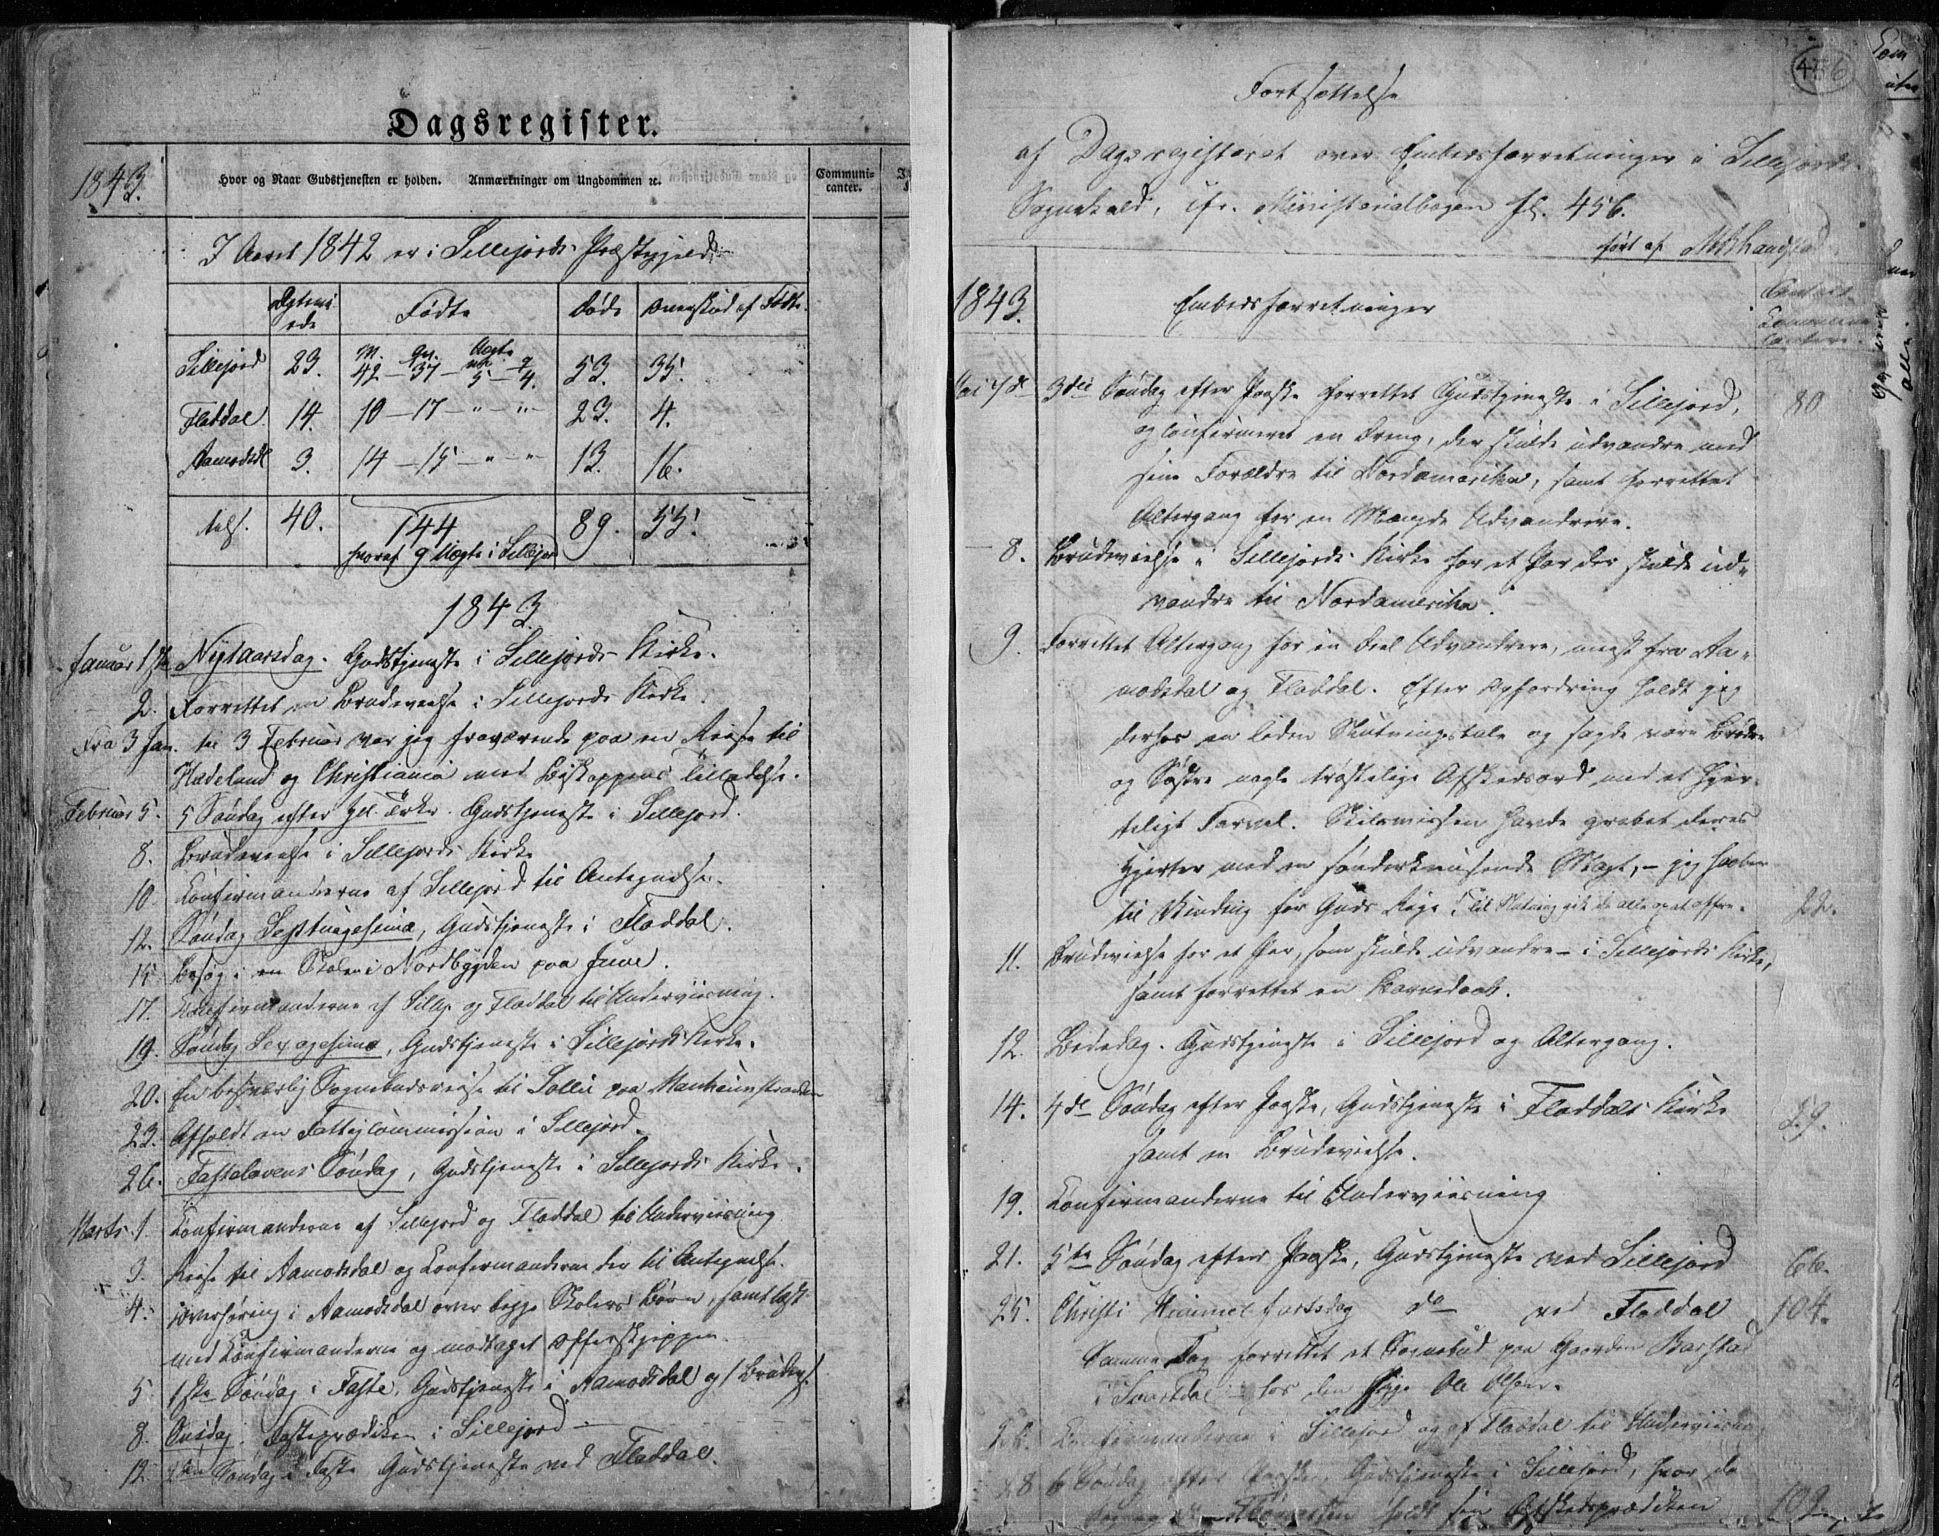 Dagsregister.
1843.
Hvor og Naar Gudstjenesten er holden. Anmærkninger om Ungdommen ec.
Communi-
canter.
I Aaret 1842 er i Sillejords Præstegjeld
Ægtevi
ede
Fødte
Døde
Overskud af Fødte.
Sillejord 23. 42 – 37 – 5 – 4. 53. 35.
Fladdal 14. 10 – 17 – " – " 23. 4.
Aamodsdl 3. 14 – 15 – " – " 13. 16.
40. 144 89. 55.
hvoraf 9 Uægte i Sillejor
1843
Januar 1ste Nytaarsdag. Gudstjeneste i Sillejords Kirke.
2. Forrettet en Brudevielse i Sillejords Kirke.
Fra 3 Jan. til 3 Februar var jeg fraværende paa en Reise til
Hadeland og Christiania med Biskoppens Tilladelse.
Februar 5. 5 Søndag efter Hel. 3 Kr. Gudstjeneste i Sillejord.
8. Brudevielse i Sillejords Kirke
10. Confirmanderne af Sillejord til Antegnelse.
12. Søndag Septuagesima, Gudstjeneste i Fladdal.
15 Besøg i en Skole i Nordbygden paa Juve.
17. Confirmanderne af Sillej. og Fladdal til Underviisning.
19. Søndag Sexagesima, Gudstjeneste i Sillejords Kirke.
20. En besværlig Sognebudsreise til Sollie paa Manheimstranden
23. Afholdt en Fattigcommission i Sillejord.
26. Fastelavens Søndag, Gudstjeneste i Sillejords Kirke.
Marts 1. Confirmanderne af Sillejord og Fladdal til Underviisning
3. Reise til Aamodsdal og Confirmanderne der til Antegnelse.
4. Overhøring i Aamodsdal over begge Skolers Børn, samt læst
med Confirmanderne og modtaget Offerskjeppen.
5. 1ste Søndag i Faste, Gudstjeneste i Aamodsdal og 1 Brudev.
8. Onsdag. Fasteprædiken i Sillejord –
12. 2den Søndag i Faste Gudstjeneste ved Fladdal.
456
Fortsættelse
af Dagsregisteret over Embedsforretninger i Sillejords
Sognekald, cfr. Ministerialbogen fol. 456.
ført af
1843.
Embedsforretninger
Mai 7de 3die Søndag efter Paaske forrettet Gudstjeneste i Sillejord, 80
og confirmeret en Dreng, der skulde udvandre med
sine Forældre til Nordamerika, samt forrettet
Altergang for en Mængde Udvandrere.
8. Brudevielse i Sillejords Kirke for et Par der skulde ud-
vandre til Nordamerika.
9. Forrettet Altergang for en Deel Udvandrere, meest fra Aa-
modsdal og Fladdal. Efter Opfordring holdt jeg
derhos en liden Slutningstale og sagde vore Brødre
og Søstre nogle trøstelige Afskedsord med et hjer-
teligt Farvel. Skilsmissen havde grebet deres
Hjerter med en sønderknusende Magt, – jeg haaber
til Vinding for Guds Rige. Til Slutning gik de alle op at offre. 22.
11. Brudevielse for et Par, som skulde udvandre – i Sillejords Kirke,
samt forrettet en Barnedaab.
12. Bededag. Gudstjeneste i Sillejord og Altergang.
14. 4de Søndag efter Paaske, Gudstjeneste i Fladdals Kirke 29.
samt en Brudevielse.
19. Confirmanderne til Underviisning
21. 5te Søndag efter Paaske, Gudstjeneste ved Sillejord 66.
25. Christi Himmelfartsdag do ved Fladdal 104.
Samme Dag forrettet et Sognebud paa Gaarden Barstad
i Svartdal – hos den syge Ole Olsen.
26. Confirmanderne i Sillejord og af Fladdal til Underviisning
28 6 Søndag efter Paaske, Gudstjeneste i Sillejord, hvor da
holdt sin Afskedsprædiken 109.